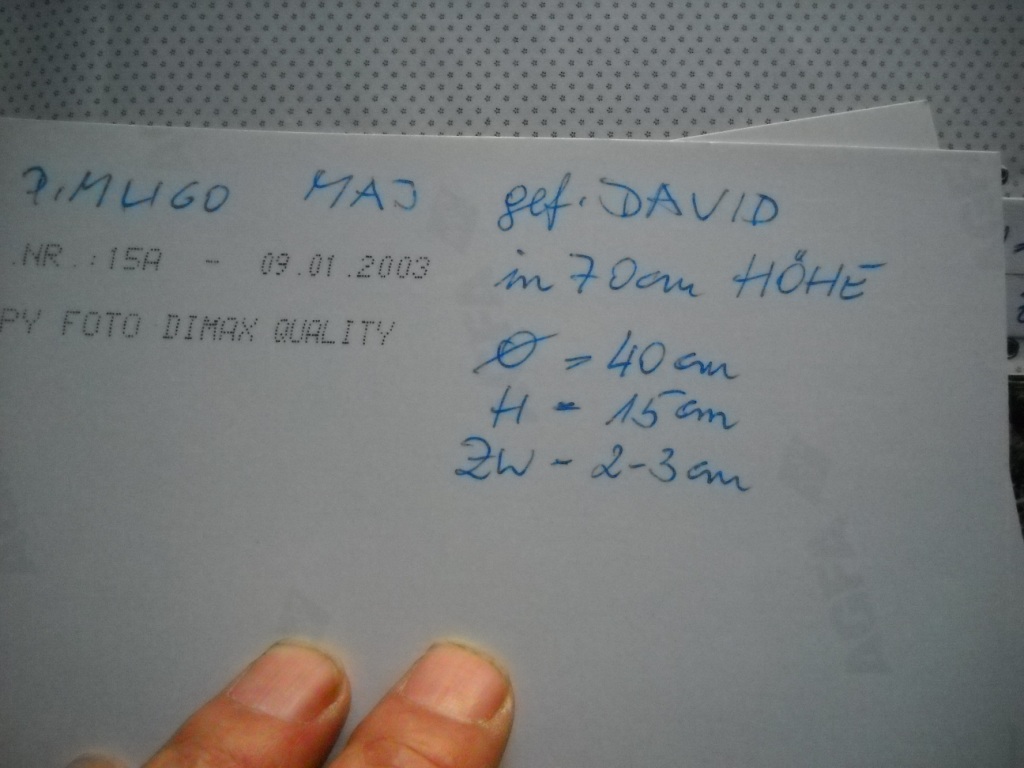 P. MUGO MAJ gef. DAVID
in 70cm HÖHE
.NR.:15A - 09.01.2003
PY FOTO DIMAX QUALITY
Ø = 40cm
H = 15cm
ZW - 2-3cm
AGFA